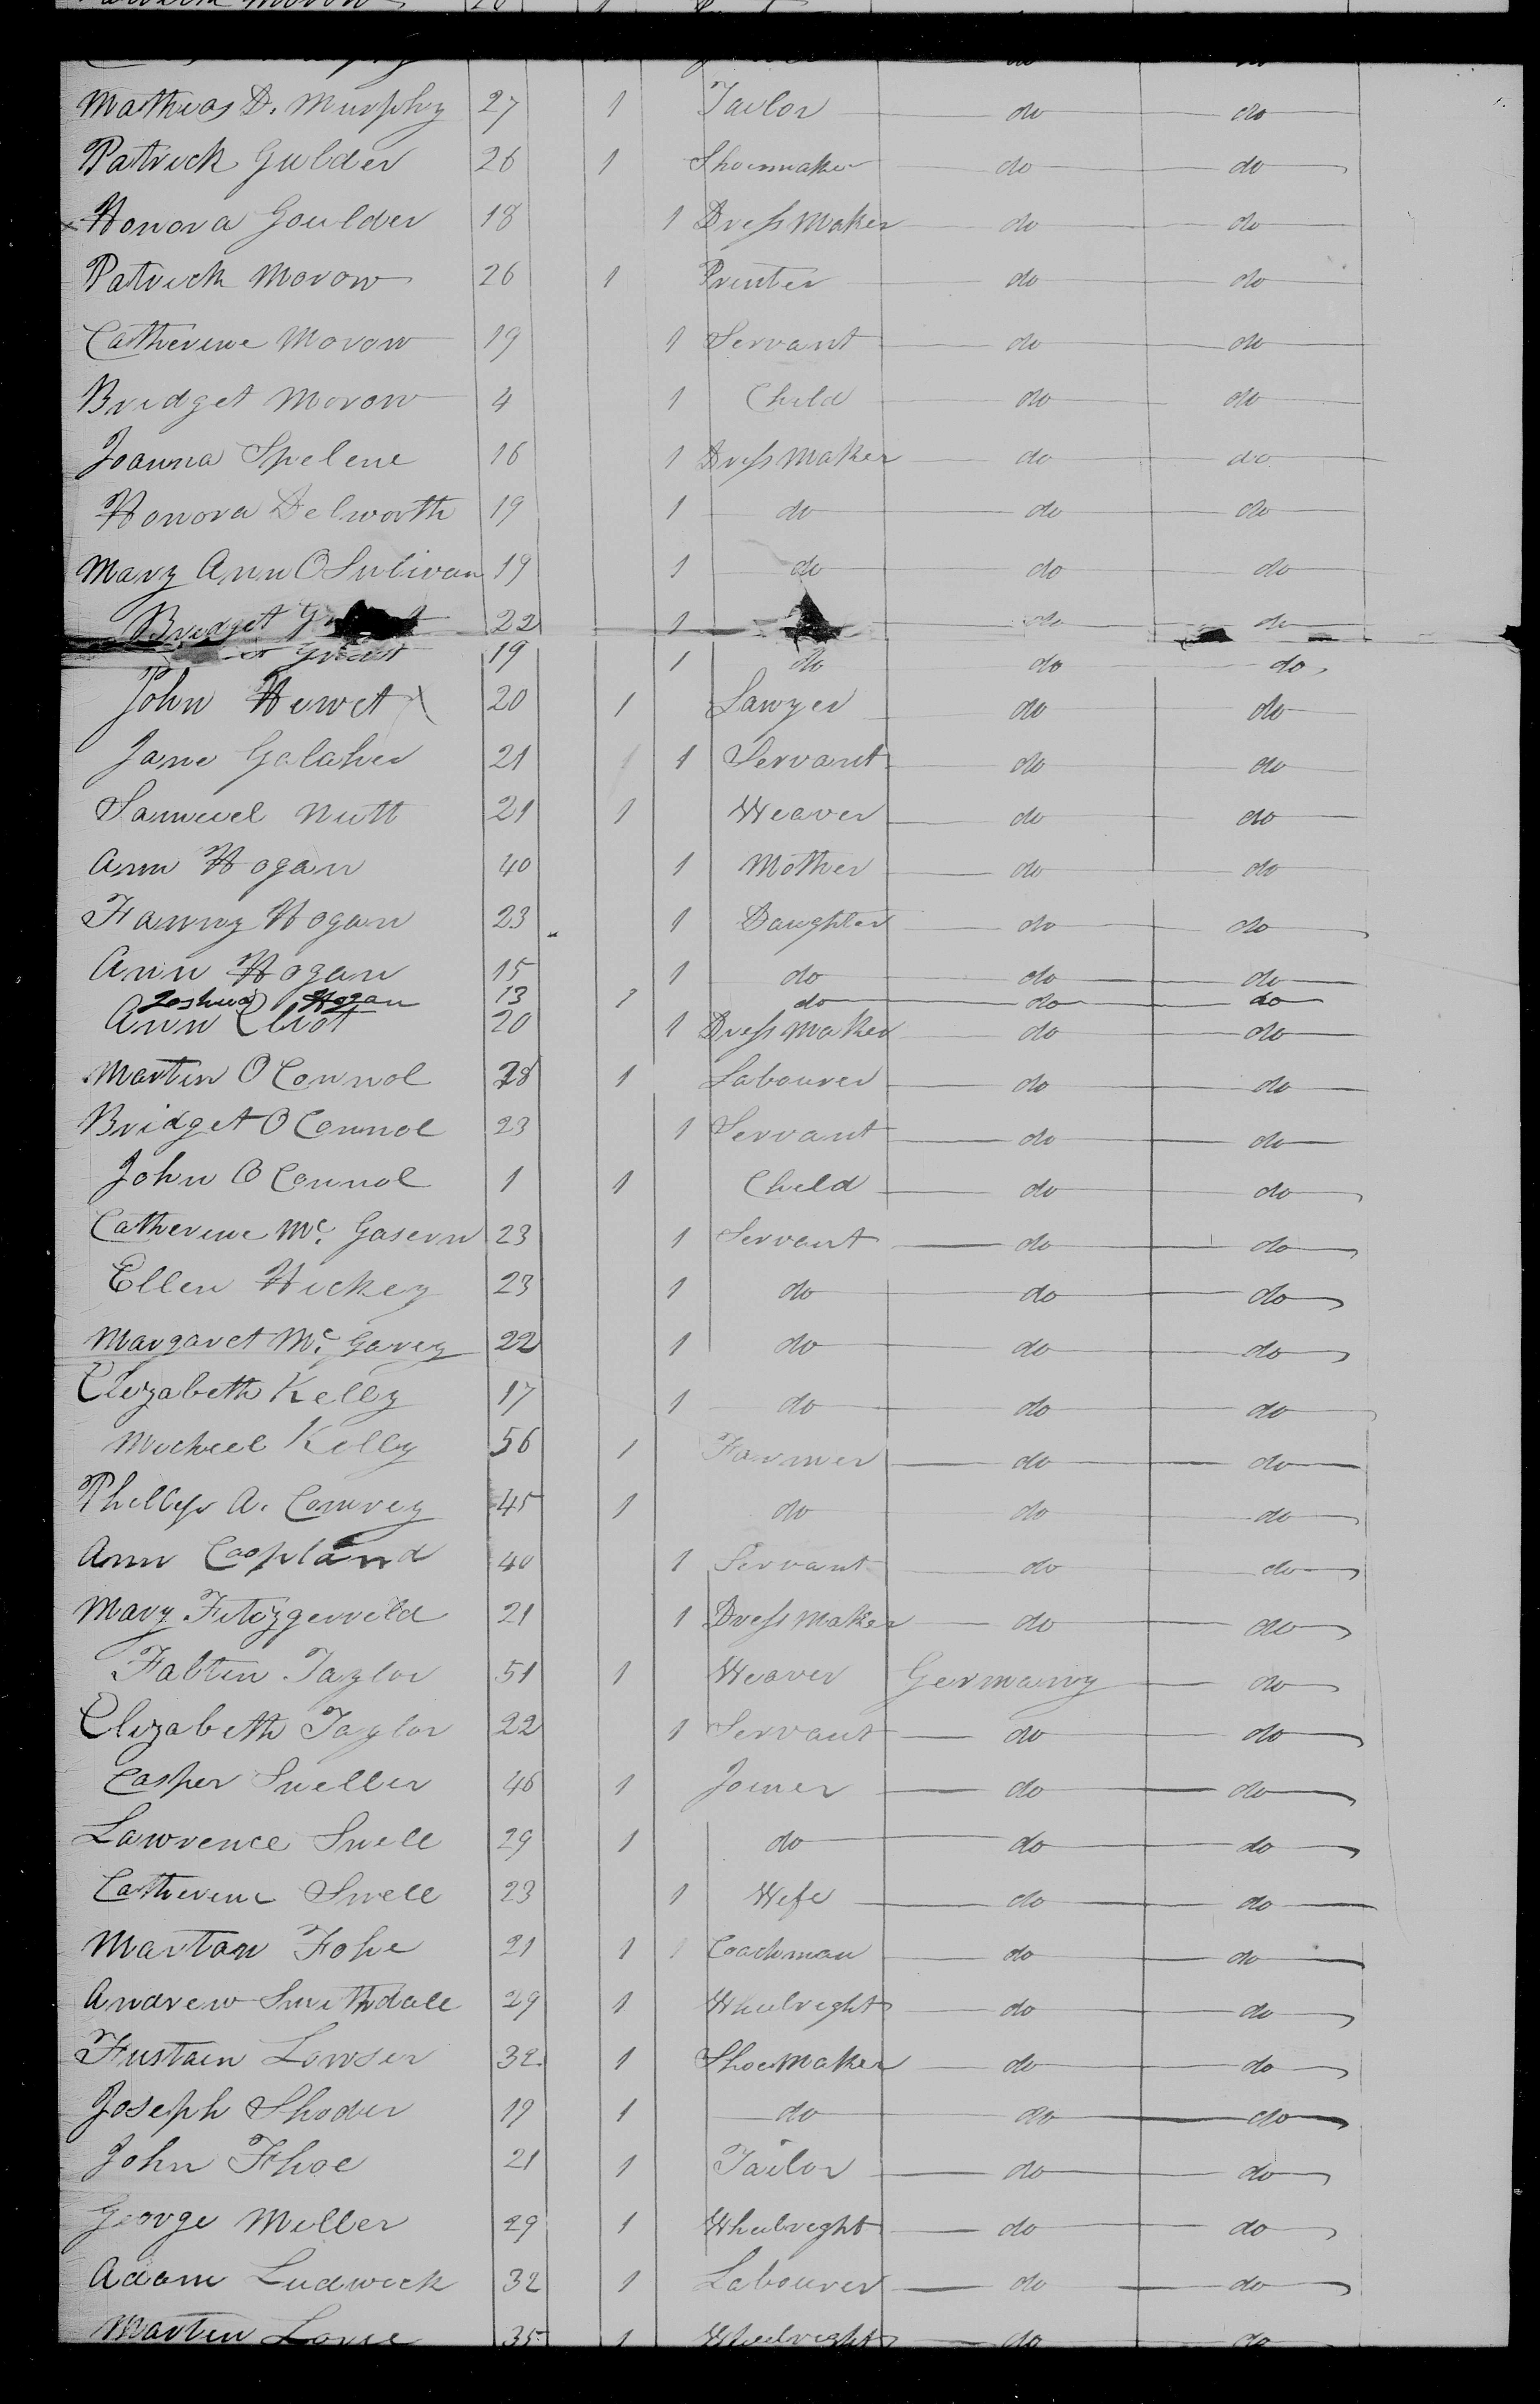 Mathias D. Murphy 27 1 Tailor do do
Patrick Gulder 26 1 Shoemaker do do
Honora Goulder 18 1 Dress Maker do do
Patrick Morow 26 1 Printer do do
Catherine Morow 19 1 Servant do do
Bridget Morow 4 1 Child do do
Joanna Spelene 16 1 Dress Maker do do
Honora Delworth 19 1 do do do
Mary Ann O Sulivan 19 1 do do do
Bridget 22 1 do do
19 1 do do do
John Hewet 20 1 Sawyer do do
Jane Galaher 21 1 Servant do do
Samuel Nutt 21 1 Weaver do do
Ann Hogan 40 1 Mother do do
Fanny Hogan 23 1 Daughter do do
Ann Hogan 15 1 do do do
Joshua Hogan 13 1 do do do
Ann Eliot 20 1 Dress Maker do do
Martin O Connol 28 1 Labourer do do
Bridget O Connol 23 1 Servant do do
John O Connol 1 1 Child do do
Catherine Mc. Gasern 23 1 Servant do do
Ellen Hickey 23 1 do do do
Margaret Mc. Garey 22 1 do do do
Elizabeth Kelly 17 1 do do do
Micheel Kelly 56 1 Farmer do do
Phillip A. Comrey 45 1 do do do
Ann Coopland 40 1 Servant do do
Mary Fitozgerreld 21 1 Dress Maker do do
Faltin Taylor 51 1 Weaver Germany do
Elizabeth Taylor 22 1 Servant do do
Casper Sneller 46 1 Joiner do do
Lawrence Snell 29 1 do do do
Catherine Snell 23 1 Wife do do
Martan Fohe 21 1 Coachman do do
Andrew Smithdale 29 1 Wheelright do do
Fustain Lowser 32 1 Shoe Maker do do
Joseph Shoder 19 1 do do do
John Fhoe 21 1 Tailor do do
George Miller 29 1 Wheelright do do
Adam Ludwick 32 1 Labourer do do
Martin 35 1 Wheelright do do